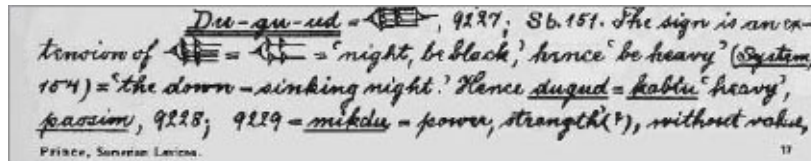 Du-gu-ud = , 9227; Sb. 151. The sign is an ex-
tension of = = 'night, be black,' hence 'be heavy' (System,
154) = 'the down-sinking night.' Hence dugud = kabtu 'heavy',
passim, 9228; 9229 = mikdu = power, strength(?), without value,
Prince, Sumerian Lexicon. 17